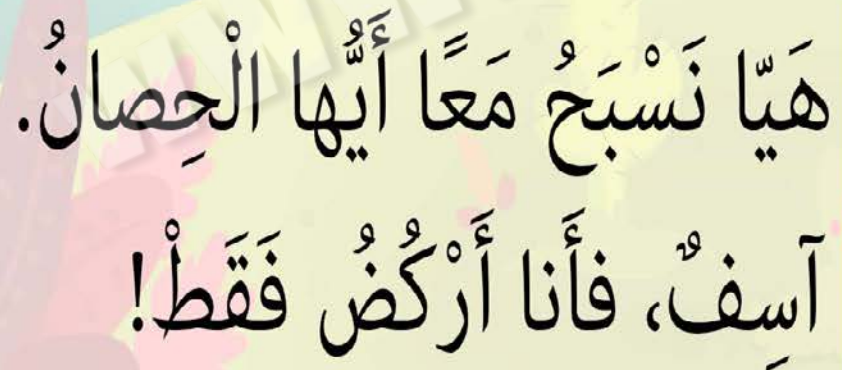 هَيّا نَسْبَحُ مَعًا أَيُّها الْحِصانُ.
آسِفٌ، فَأَنا أَرْكُضُ فَقَطْ!